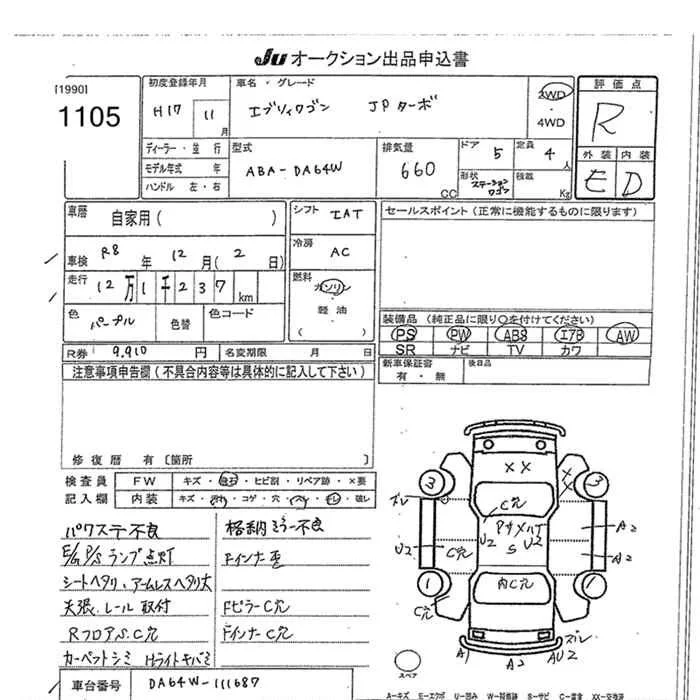 JU オークション出品申込書
[1990]
1105
初度登録年月
H17 11 月
車名・グレード
エブリィワゴン JPターボ
2WD
・
4WD
評価点
R
外装 内装
E D
ディーラー・並 行
モデル年式 年
ハンドル 左・右
型式
ABA-DA64W
排気量
660 CC
ドア 5
定員 4 人
形状 ステーションワゴン
積載 Kg
車歴 自家用( )
シフト IAT
セールスポイント(正常に機能するものに限ります)
車検 R8 年 12 月( 2 日)
冷房 AC
走行 12万1千237 km
燃料 ガソリン
軽油
( )
色 パープル 色替 色コード
装備品(純正品に限り○を付けてください)
PS PW ABS エアB AW
SR ナビ TV カワ
R券 9,910 円 名変期限 月 日
新車保証書 有・無 後日品
注意事項申告欄(不具合内容等は具体的に記入して下さい)
修復歴 有〔箇所 〕
検査員 FW キズ・飛石・ヒビ割・リペア跡・×要
記入欄 内装 キズ・汚れ・コゲ・穴・スレ・キレ・破レ
パワステ不良 格納ミラー不良
E/G P/S ランプ点灯 Fインナー歪
シートヘタリ、アームレスヘタリ大
天張、レール取付 FピラーC穴
RフロアS.C穴 FインナーC穴
カーペットシミ Hライトキバミ
車台番号 DA64W-111687
××
3 3
××
ズレ
C穴
PサメハゲS
U2 U2
A2
U2 C穴
A2
1 内C穴 1
C穴
ズレ
A1 A2 AU2
スペア
A-キズ E-エクボ U-凹み W-補修跡 S-サビ C-腐食 XX-交換済